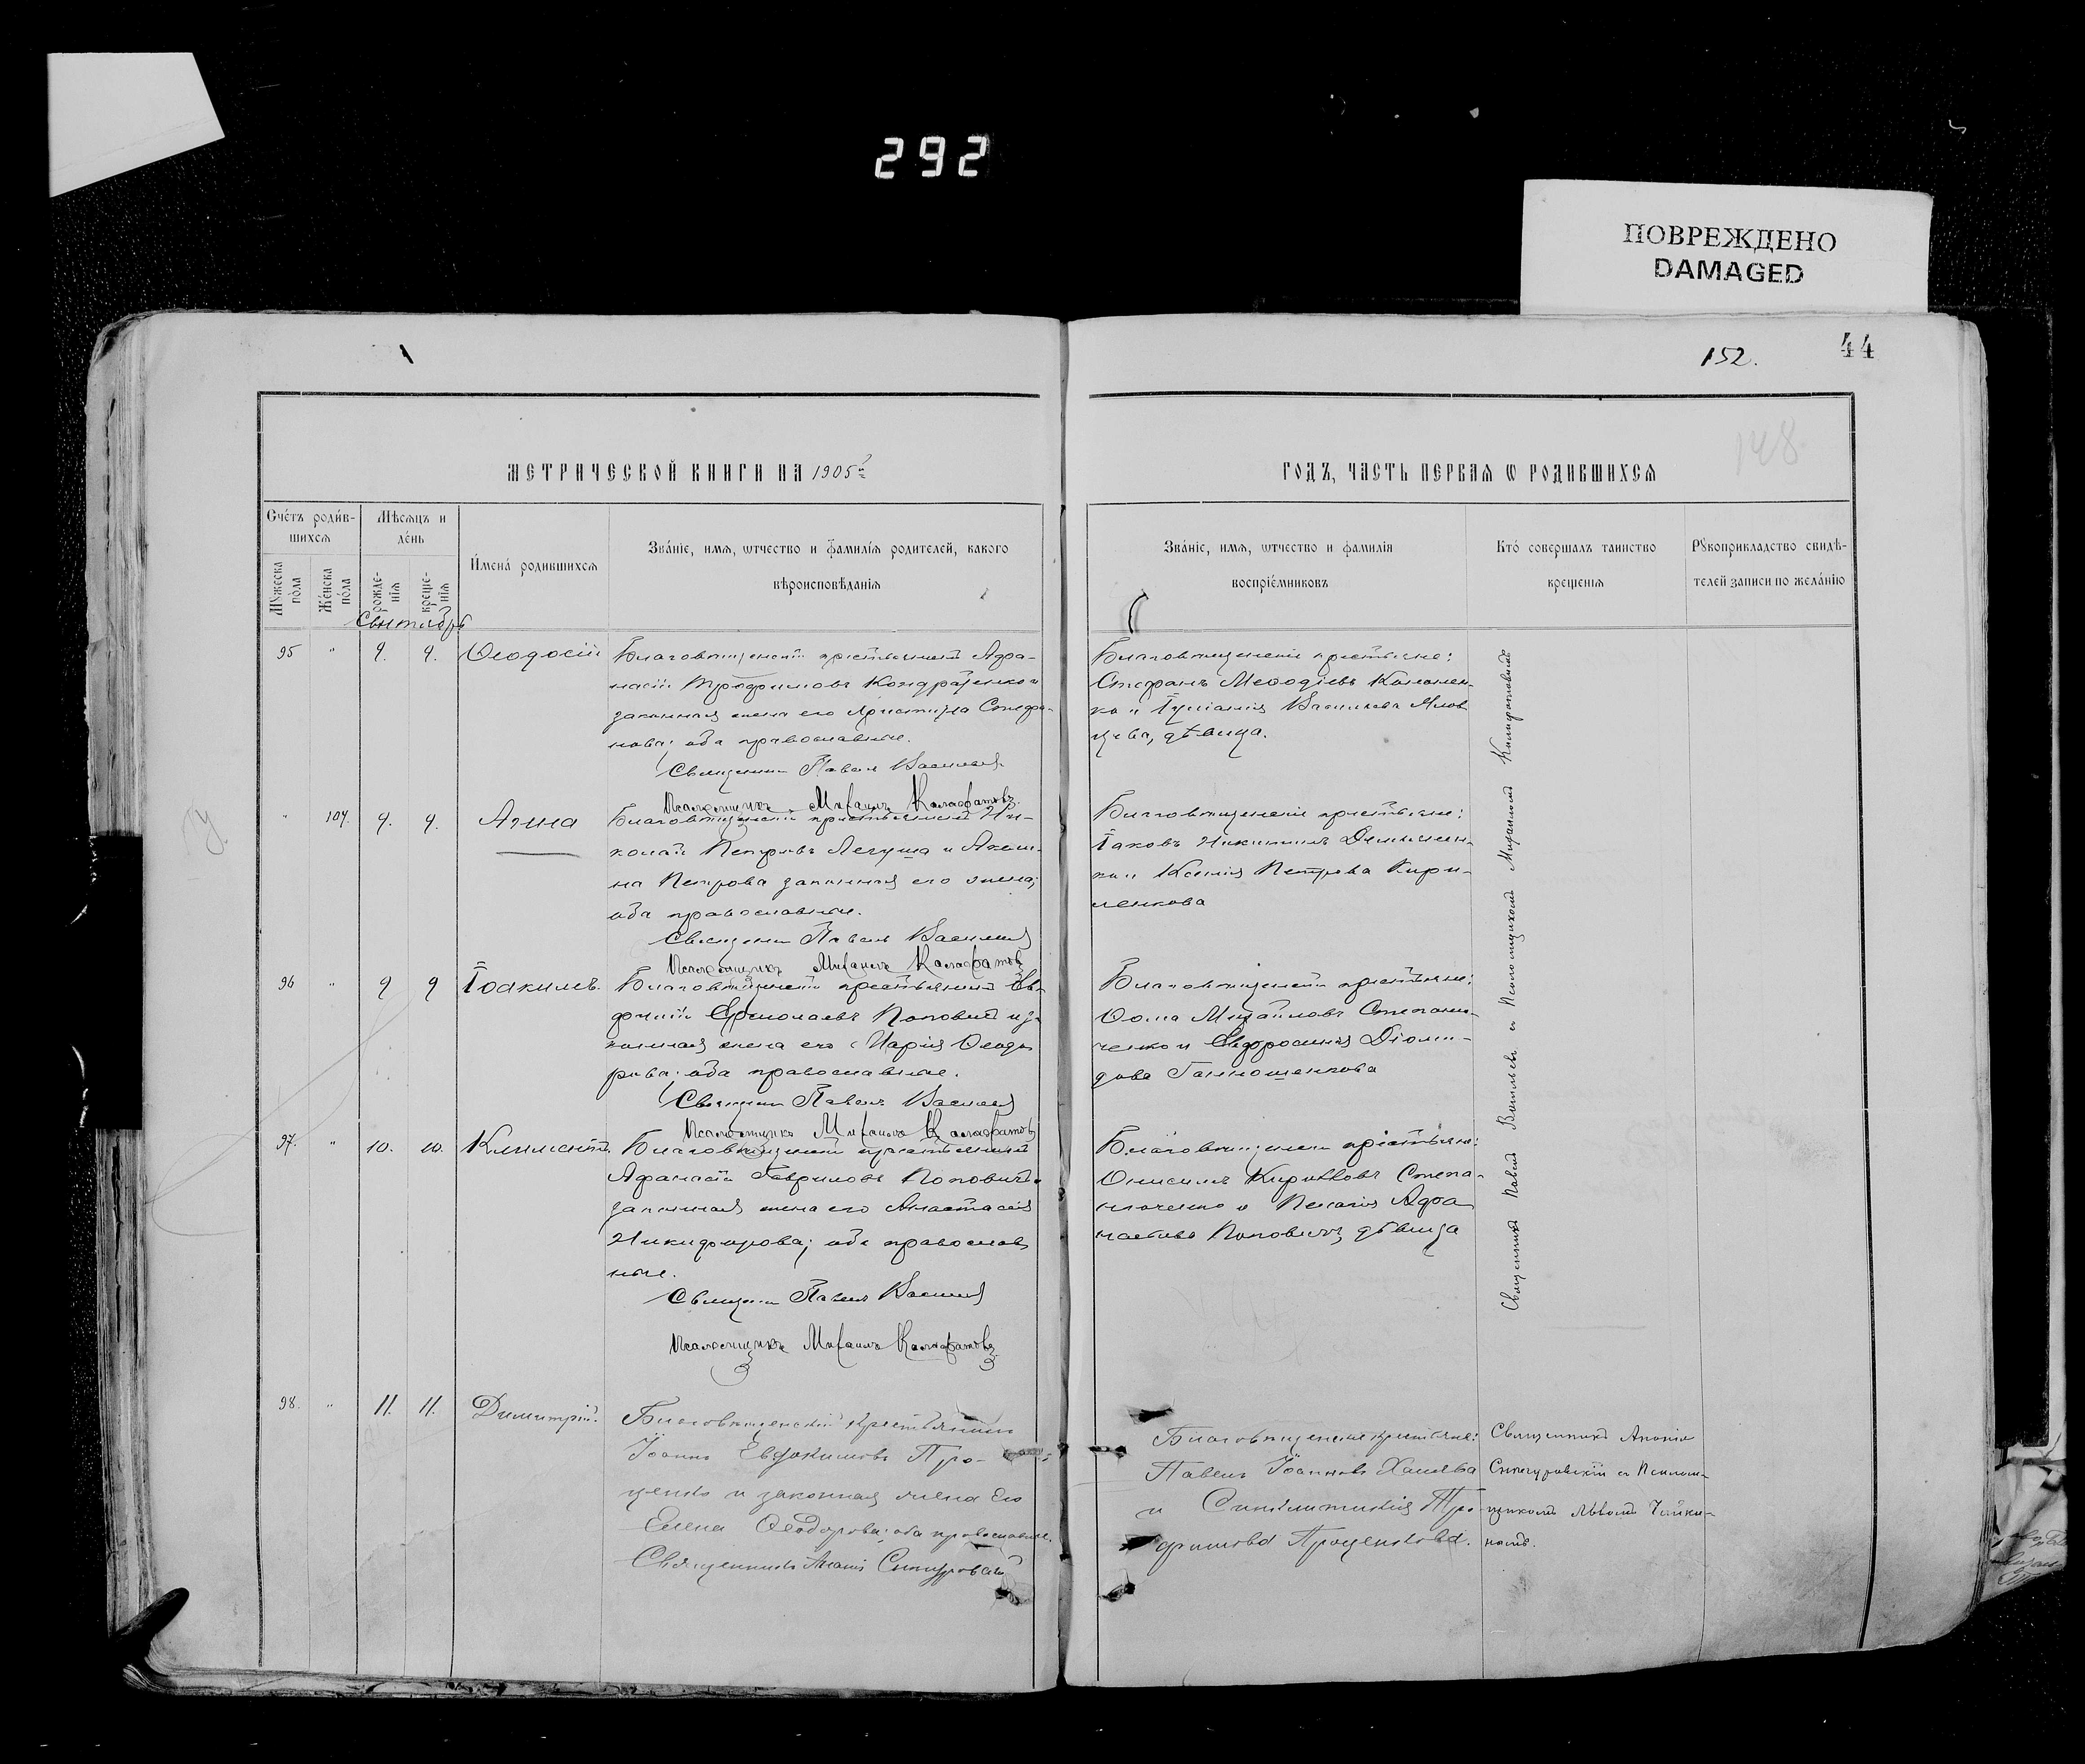 292
ПОВРЕЖДЕНО
DAMAGED
152.
44
148
МЕТРИЧЕСКОЙ КНИГИ НА 1905 г.
ГОДЪ, ЧАСТЬ ПЕРВАЯ Ѡ РОДИВШИХСЯ
Счетъ родив-
шихся
Мужеска пола
Женска пола
Мѣсяцъ и
день
рожде-
нія
креще-
нія
Имена родившихся
Званіе, имя, ѿчество и фамилія родителей, какого
вѣроисповѣданія
Званіе, имя, ѿчество и фамилія
воспріемниковъ
Кто совершалъ таинство
крещенія
Рукоприкладство свидѣ-
телей записи по желанію
Сентябрь
95 " 9. 9. Ѳеодосій
Благовѣщенскій крестьянинъ Аѳа-
насій Трофимовъ Кондратенко и
законная жена его Христина Стефа-
нова; оба православные.
Священникъ Павелъ Васильевъ
Псаломщикъ Михаилъ Калафатовъ
Благовѣщенскіе крестьяне:
Стефанъ Меѳодіевъ Коломен-
ко и Іуліанія Васильева
дѣвица.
" 104. 9. 9. Анна
Благовѣщенскій крестьянинъ Ни-
колай Петровъ Легуша и Акели-
на Петрова законная его жена;
оба православные.
Священникъ Павелъ Васильевъ
Псаломщикъ Михаилъ Калафатовъ
Благовѣщенскіе крестьяне:
Іаковъ Никитинъ Демьянен-
ко и Ксенія Петрова Кири-
ленкова
96 " 9 9 Іоакимъ.
Благовѣщенскій крестьянинъ Ев-
докій Ермолаевъ Поповичъ и за-
конная жена его Марія Ѳеодо-
рова; оба православные.
Священникъ Павелъ Васильевъ
Псаломщикъ Михаилъ Калафатовъ
Благовѣщенскіе крестьяне:
Ѳома Михайловъ Степани-
ченко и Евфросинія Діоми-
дова Ганношенкова
97. " 10. 10. Климентъ.
Благовѣщенскій крестьянинъ
Афанасій Гавриловъ Поповичъ и
законная жена его Анастасія
Никифорова; оба православ
ные.
Священникъ Павелъ Васильевъ
Псаломщикъ Михаилъ Калафатовъ
Благовѣщенскіе крестьяне:
Онисимъ Кирилловъ Степа-
ниченко и Пелагія Аѳа
насьева Поповичъ, дѣвица
Священникъ Павелъ Васильевъ съ Псаломщикомъ Михаиломъ Калафатовымъ
98. " 11. 11. Димитрій.
Благовѣщенскій крестьянинъ
Іоаннъ Евдокимовъ Про-
ценко и законная жена его
Елена Ѳеодорова; оба православные.
Священникъ Ананія Снигуровскій
Благовѣщенскіе крестьяне:
Павелъ Іоанновъ Халява
и Синклитикія Тро-
фимова Проценкова.
Священникъ Ананія
Снигуровскій съ Псалом-
щикомъ Львомъ Чайки-
нымъ.